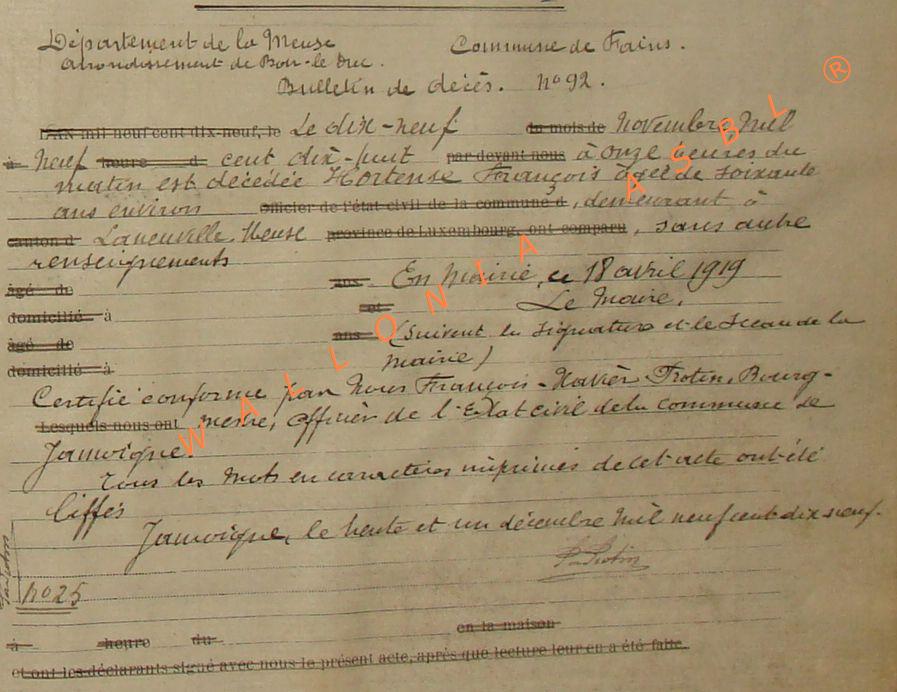 Département de la Meuse Commune de Fains.
Arrondissement de Bar-le Duc.
Bulletin de décès. no 92.
L'AN mil neuf cent dix-neuf, le Le dix-neuf du mois de Novembre Mil
à Neuf heure d cent dix-huit par devant nous à onze heures du
matin est décédée Hortense François âgée de soixante
ans environ Officier de l'état-civil de la commune d , demeurant à
canton d Laneuville, Meuse province de Luxembourg, ont comparu , sans autre
renseignements
âgé de ans En Mairie, ce 18 avril 1919
domicilié à et Le Maire,
âgé de ans (Suivent la signature et le sceau de la
domicilié à mairie)
Certifié conforme par Nous François-Xavier Protin, Bourg-
Lesquels nous ont mestre, Officier de l'Etat civil de la commune de
Jamoigne.
Tous les mots en caractères imprimés de cet acte ont été
biffés
Jamoigne, le trente et un décembre mil neuf cent dix neuf.
no 25
à heure du en la maison
et ont les déclarants signé avec nous le présent acte, après que lecture leur en a été faite.
WALLONIA ASBL ®